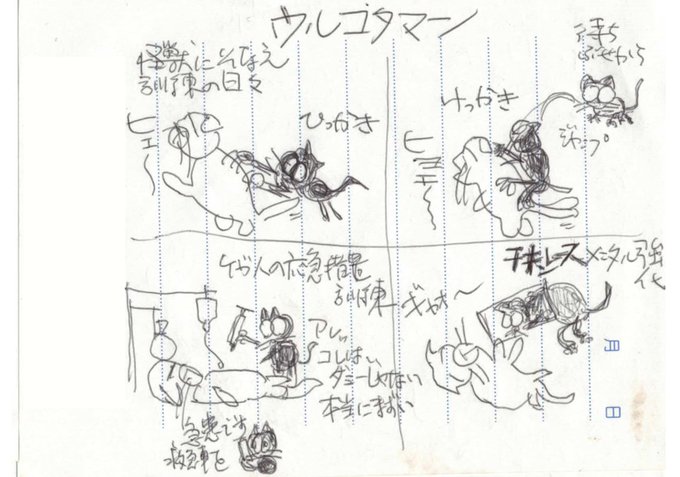 ウルゴタマーン
怪獣にそなえ
訓練の日々
ひっかき
ヒェ〜
待ち
ぶせから
けっかき
ジャンプ
ヒョエ〜
ケガ人の応急措置
訓練
アレッ
コレはい
ダミーじゃない
本当にまずい
急患です
救急車を
ストレス メンタル強
化
ギャオ〜
月
日